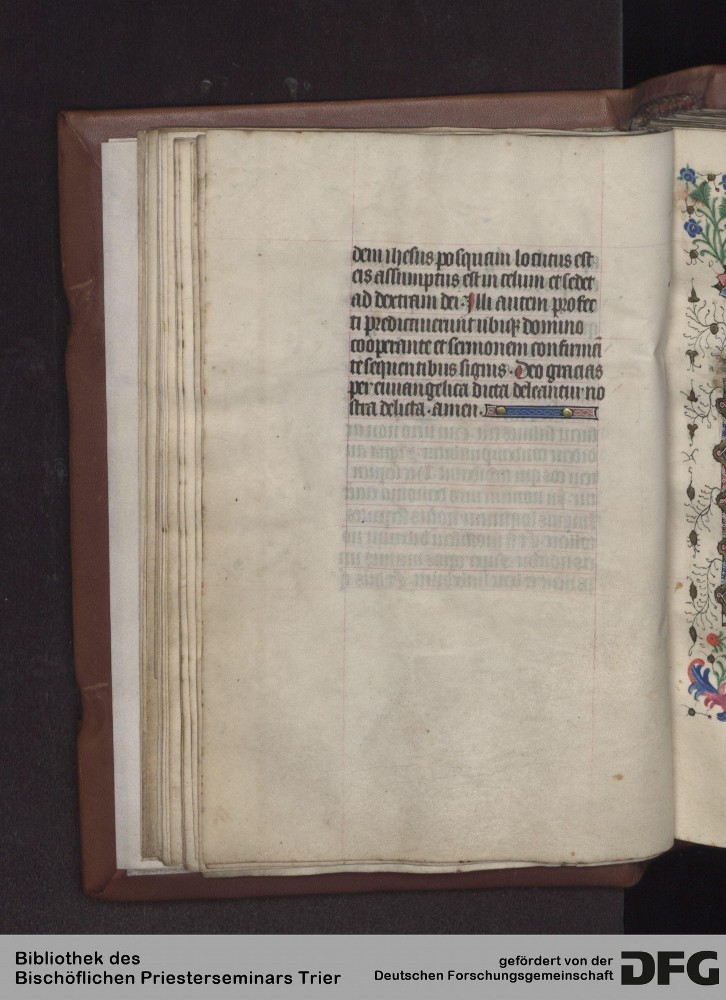 dem ihesus posquam locutus est
eis assumptus est in celum et sedet
ad dextram dei. Illi autem profec
ti predicauerunt ubiq domino
cooperante et sermonem confirmā
te sequentibus signis. Deo gracias
per euuangelica dicta deleantur no
stra delicta. amen.
Bibliothek des
Bischöflichen Priesterseminars Trier
gefördert von der
Deutschen Forschungsgemeinschaft
DFG